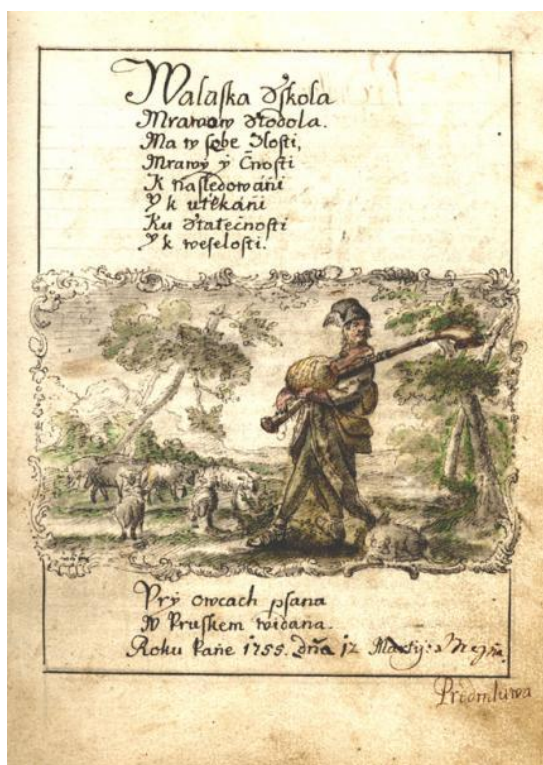 Walaska Sskola
Mrawow Stodola.
Ma w sobe Zlosti,
Mrawÿ y Cnosti
K nasledowáńi
Y k utěkáńi
Ku Statečnosti
Y k weselosti.
Prÿ owcach psana
W Pruskem widana.
Roku Páne 1755. dńa 12 Martij:
Prědmluwa